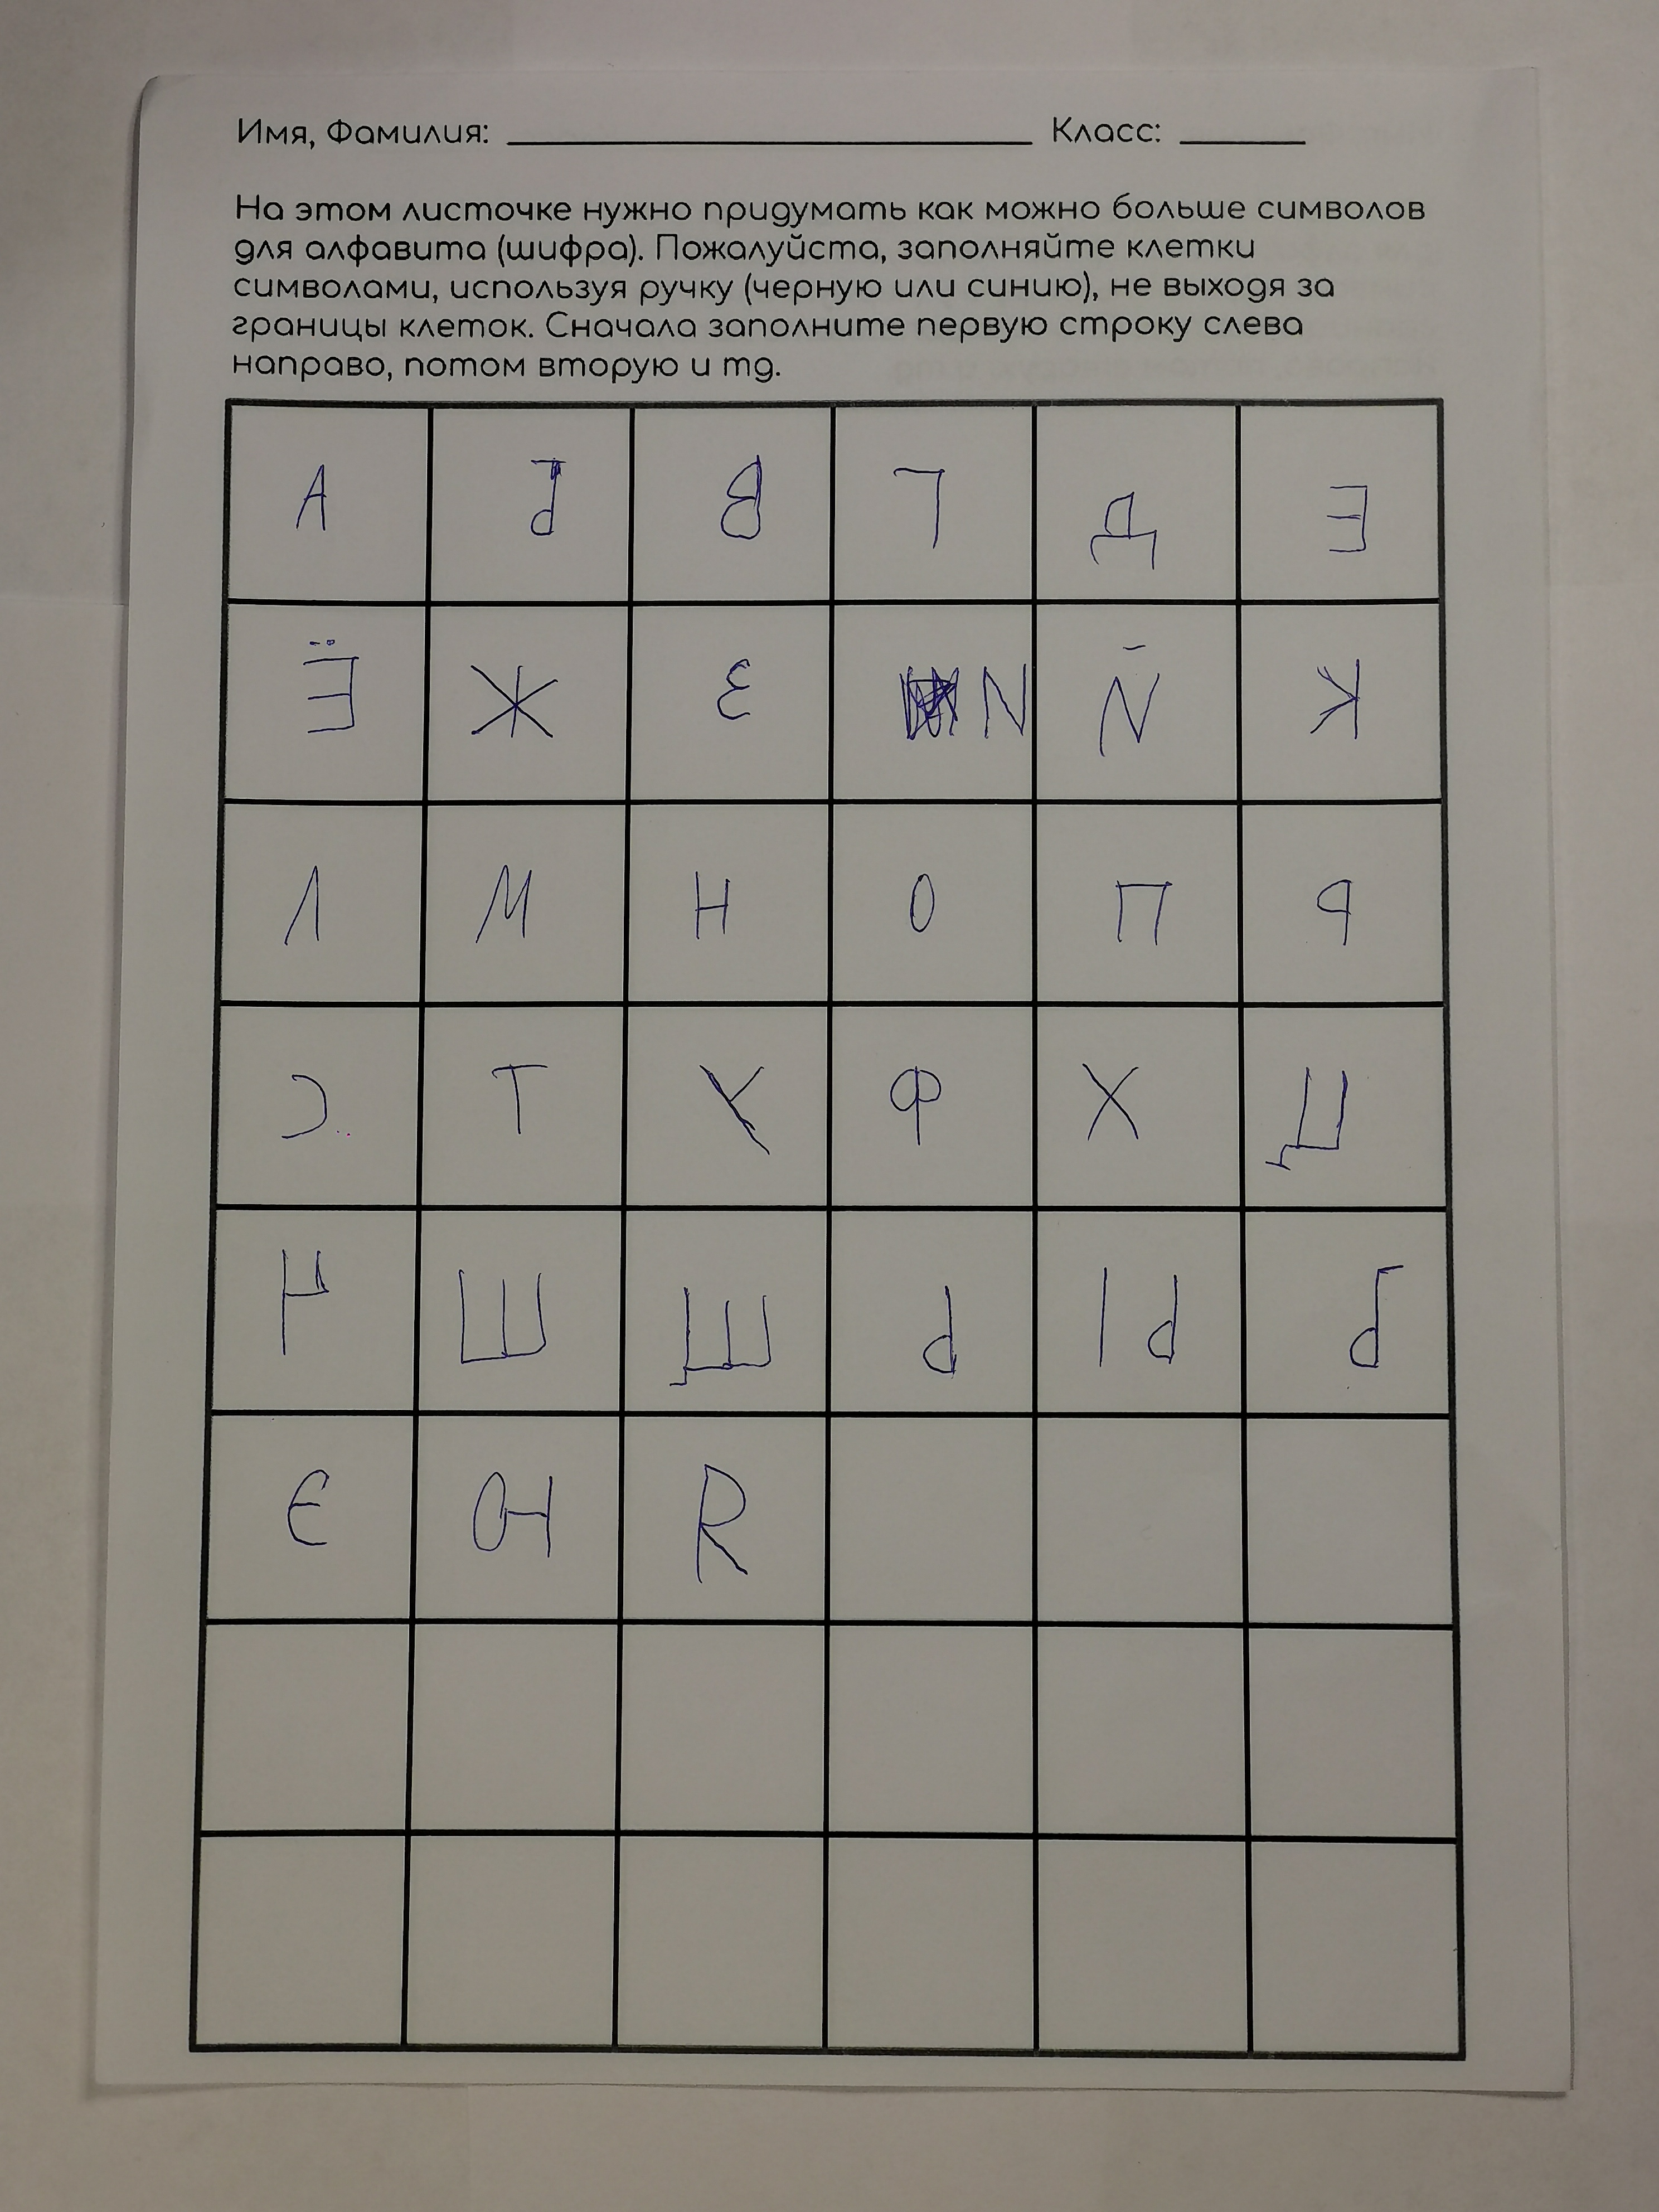 Имя, Фамилия: ____________ Класс: ____
На этом листочке нужно придумать как можно больше символов
для алфавита (шифра). Пожалуйста, заполняйте клетки
символами, используя ручку (черную или синию), не выходя за
границы клеток. Сначала заполните первую строку слева
направо, потом вторую и тд.
А Б В Г Д Е
Ё Ж З И Й К
Л М Н О П Р
С Т У Ф Х Ц
Ч Ш Щ Ь Ы Ъ
Э Ю Я